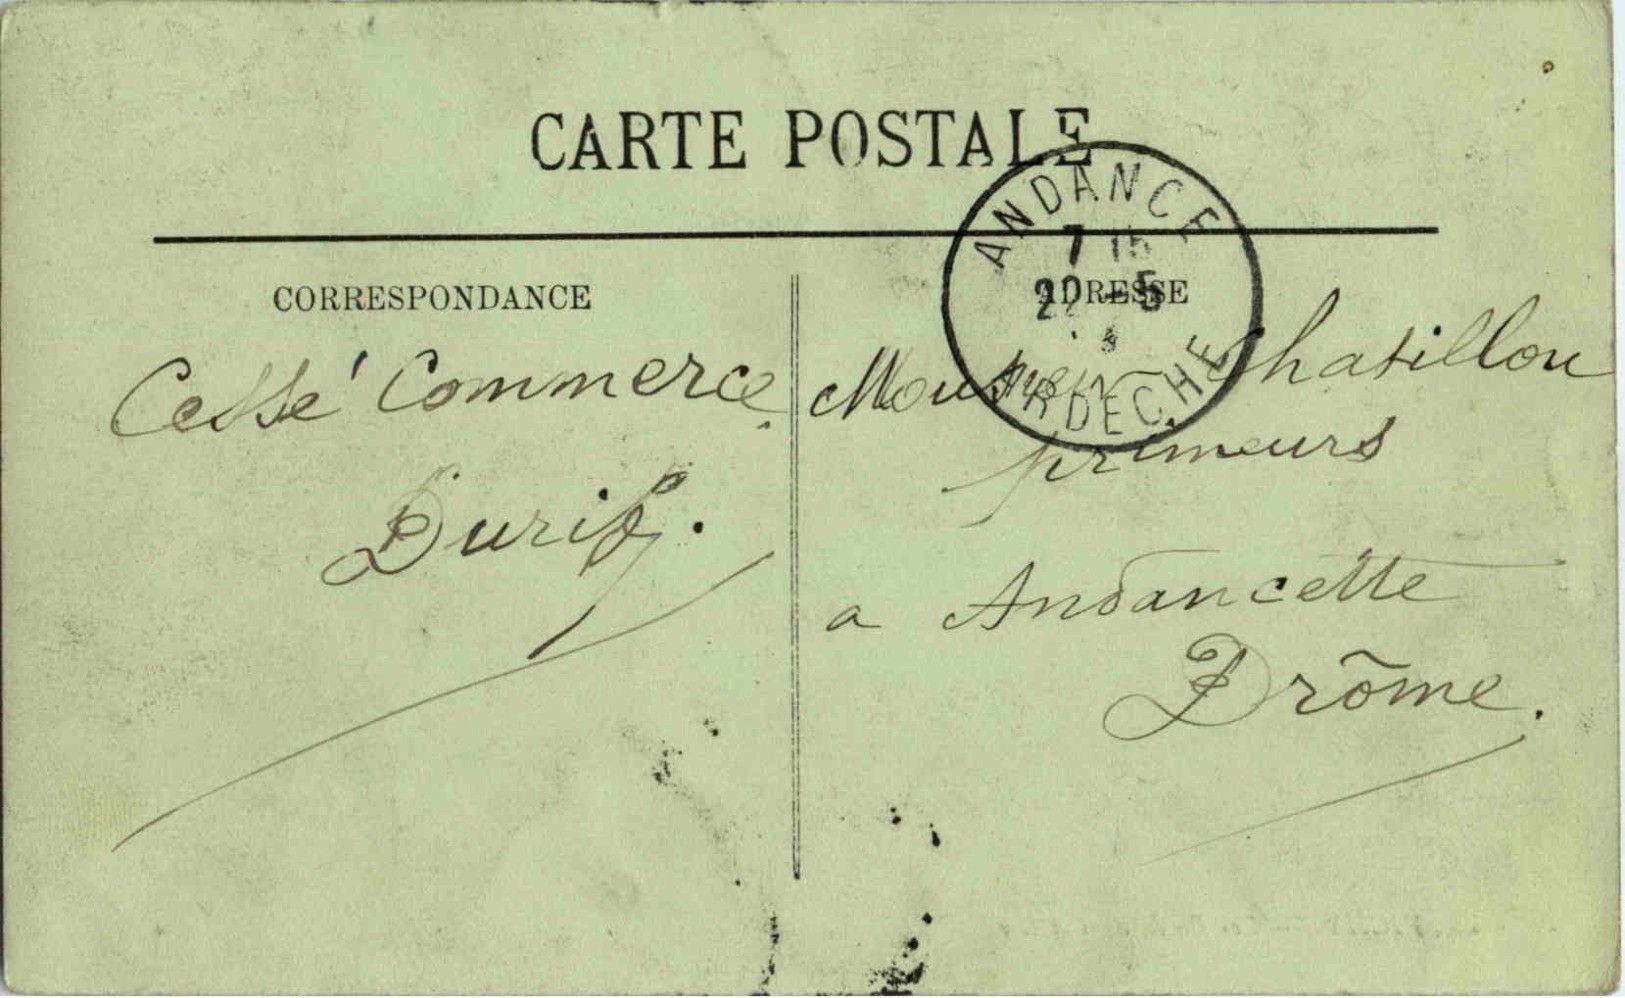 CARTE POSTALE
ANDANCE
7 15
22 -5
ARDECHE
CORRESPONDANCE
ADRESSE
Cessé Commerce.
Durif.
Monsieur Chatillon
primeurs
a Andancette
Drôme.